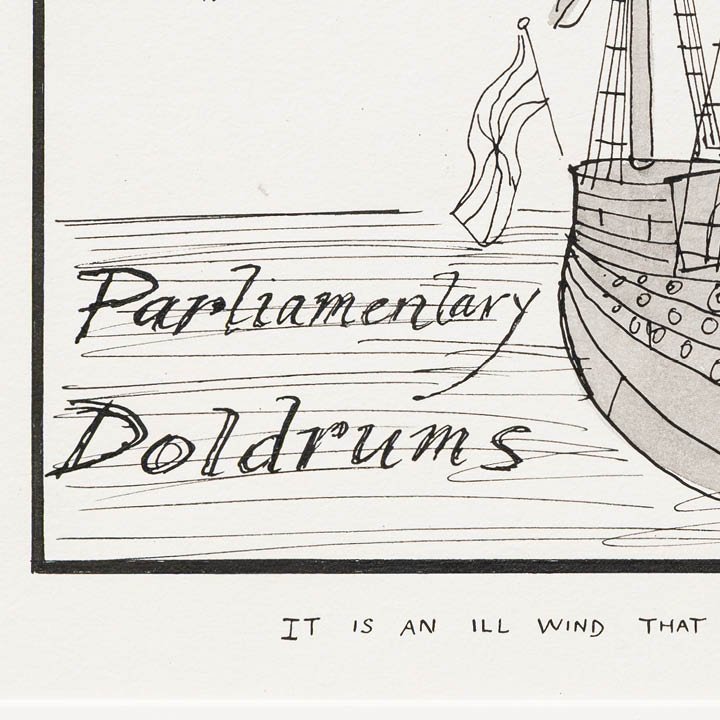 Parliamentary
Doldrums
IT IS AN ILL WIND THAT